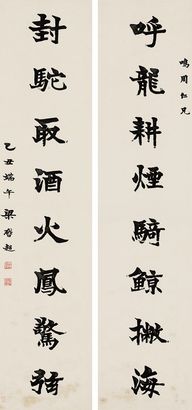 鳴周仁兄
呼龍耕煙騎鯨撇海
封駝取酒火鳳驚
乙丑端午 梁啓超